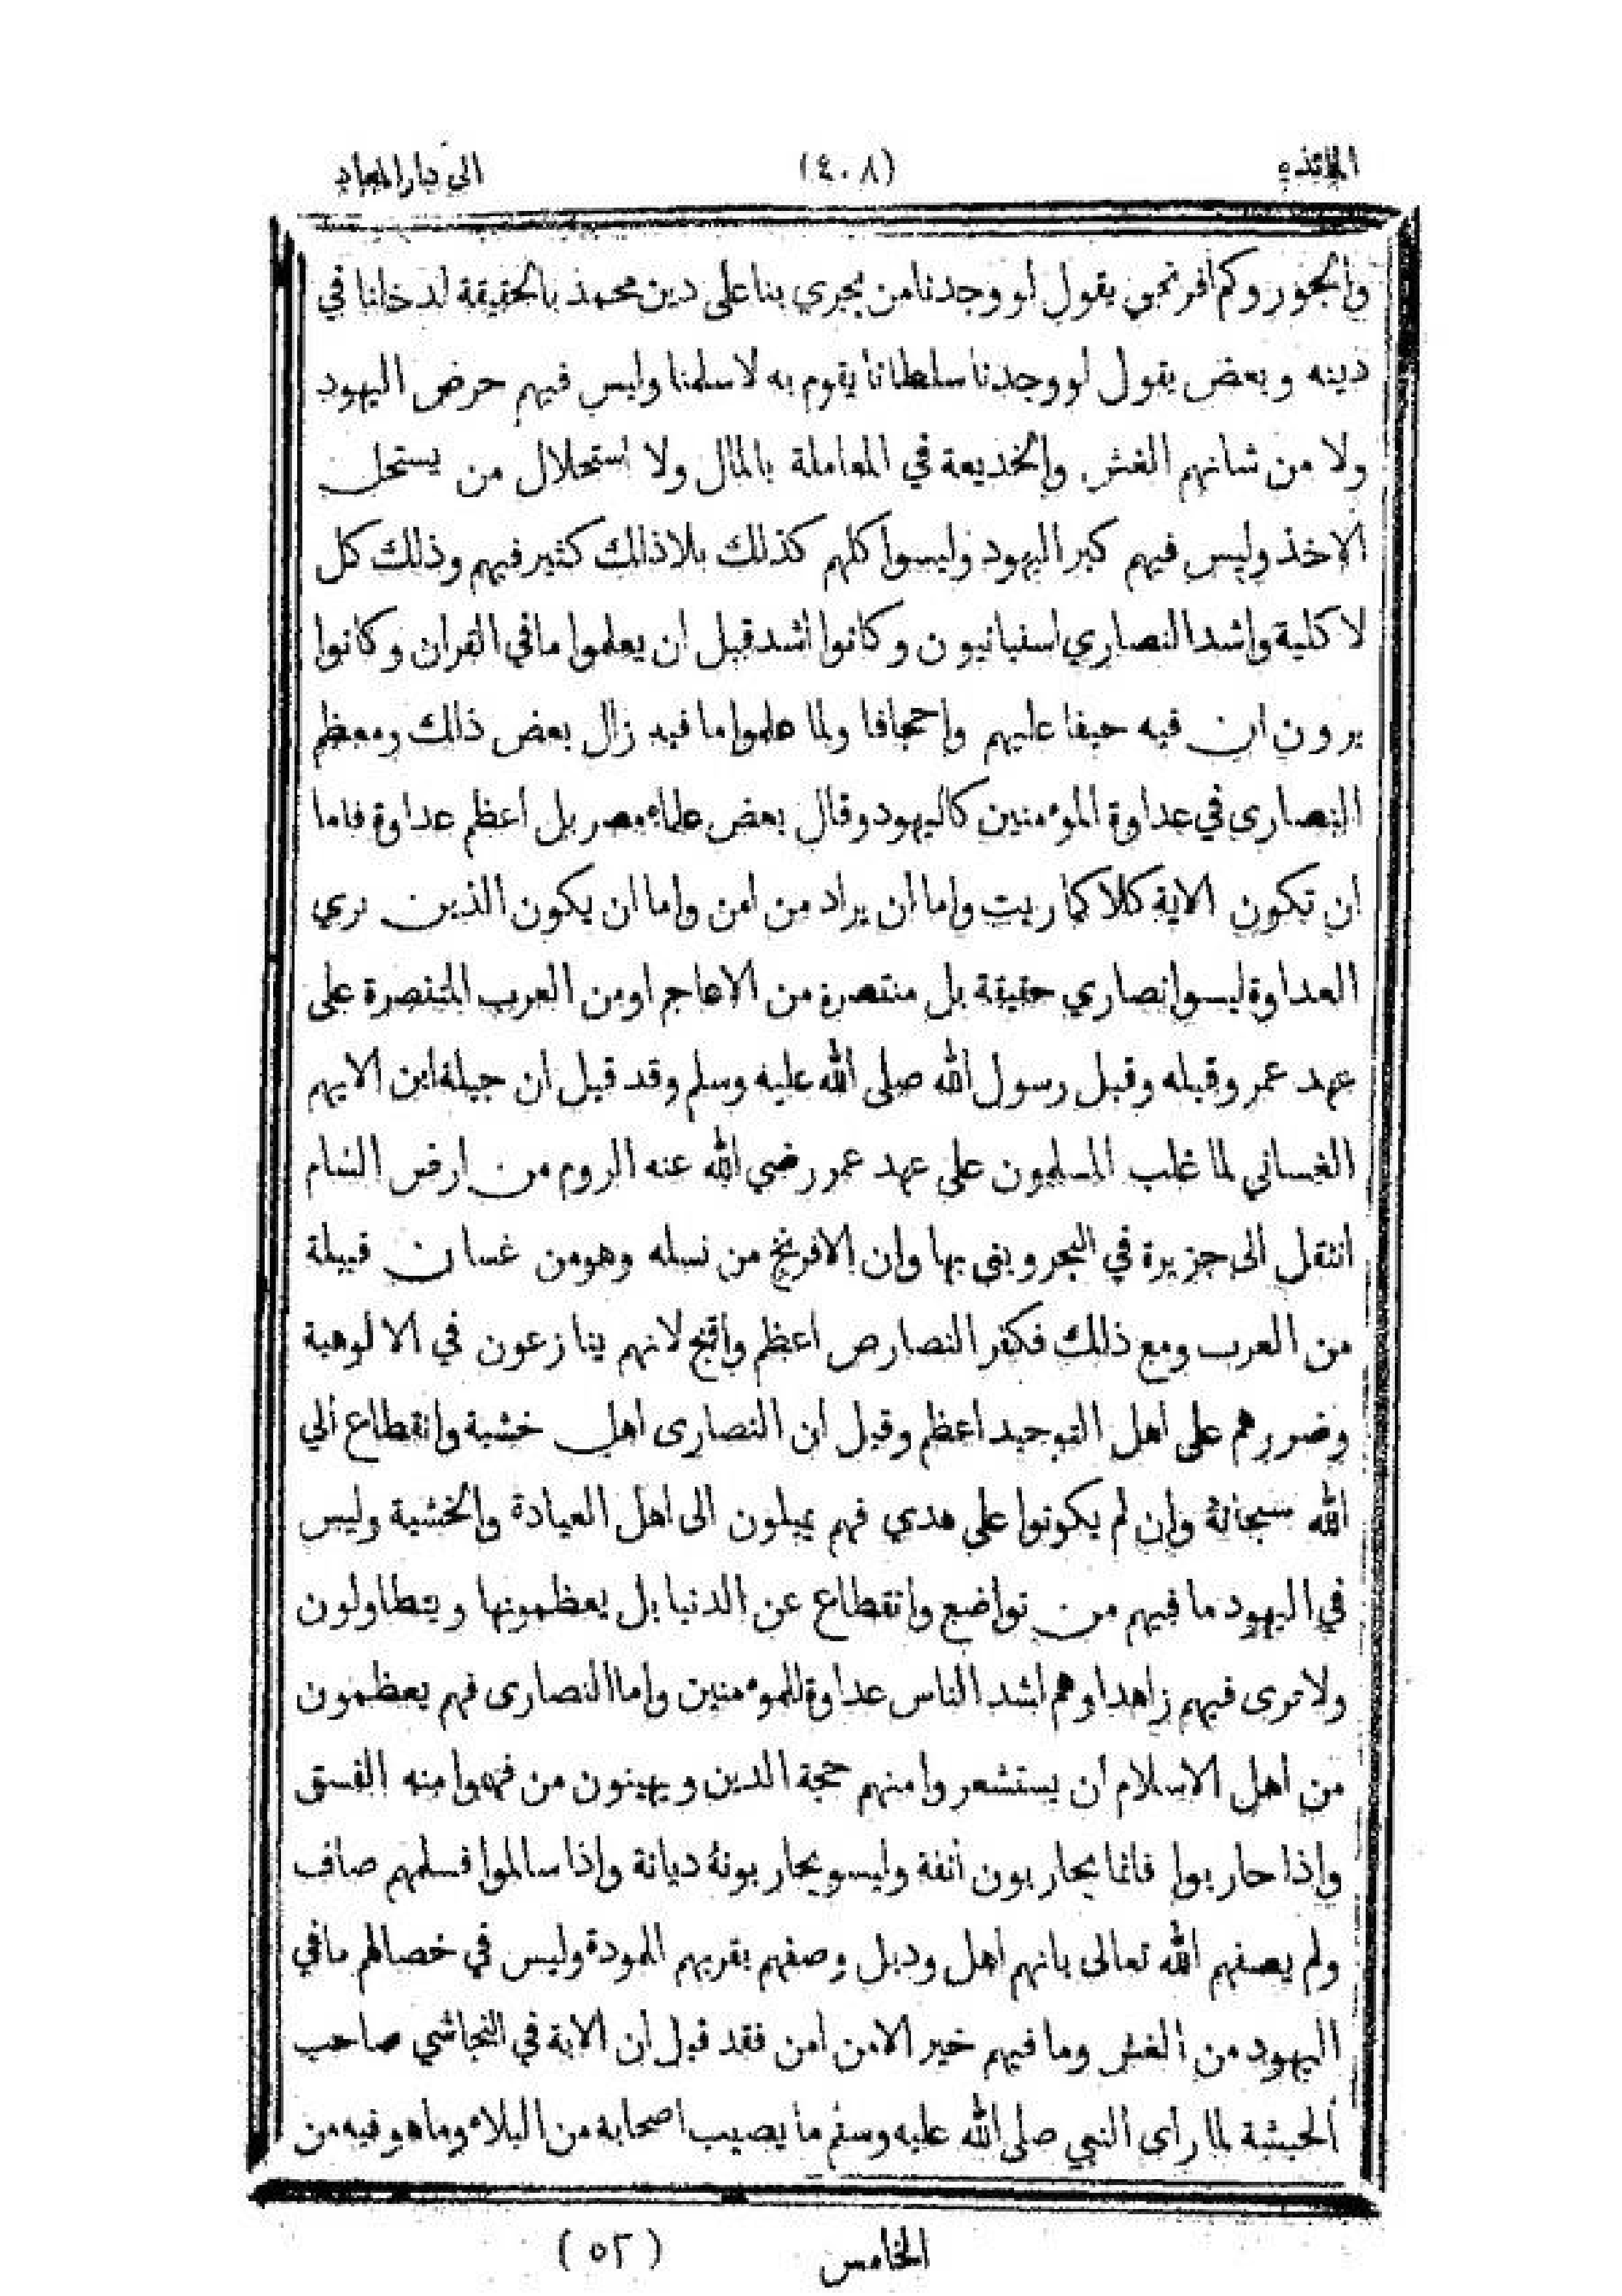 المائده (٤٠٨) الى دار المعاد
والجور وكم افرنجي يقول لو وجدنا من يجري بنا على دين محمد بالحقيقة لدخلنا في
دينه وبعض يقول لو وجدنا سلطانا يقوم به لاسلمنا وليس فيهم حرض اليهود
ولا من شانهم الغش والخديعة في المعاملة بالمال ولا استحلال من يستحل
الاخذ وليس فيهم كبر اليهود وليسوا كلهم كذلك بلا ذالك كثير فيهم وذلك كل
لا كلية واشد النصاري اسفبانيون وكانوا اشد قبل ان يعلموا ما في القران وكانوا
يرون ان فيه حيفا عليهم واحجافا ولما علموا ما فيه زال بعض ذالك ومعظم
النصاري في عداوة المؤمنين كاليهود وقال بعض علماء مصر بل اعظم عداوة فاما
ان تكون الاية كلا كما ريت واما ان يراد من امن واما ان يكون الذين نري
العداوة ليسوا نصاري حقيقة بل منتصرة من الاعاجم او من العرب المتنصرة على
عهد عمر وقبله وقبل رسول الله صلى الله عليه وسلم وقد قيل ان جبلة ابن الايهم
الغساني لما غلب المسلمون على عهد عمر رضي الله عنه الروم من ارض الشام
انتقل الى جزيرة في البحر وبقي بها وان الافرنج من نسله وهو من غسان قبيلة
من العرب ومع ذلك فكفر النصارص اعظم واقبح لانهم ينازعون في الالوهية
وضررهم على اهل التوحيد اعظم وقيل ان النصارى اهل خشية وانقطاع الي
الله سبحانه وان لم يكونوا على هدي فهم يميلون الى اهل العبادة والخشية وليس
في اليهود ما فيهم من تواضع وانقطاع عن الدنيا بل يعظمونها ويتطاولون
ولا ترى فيهم زاهدا وهم اشد الناس عداوة للمؤمنين واما النصارى فهم يعظمون
من اهل الاسلام ان يستشعروا منهم حجة الدين ويهينون من فهموا منه الفسق
واذا حاربوا فانما يحاربون انفة وليسو يحاربونه ديانة واذا سالموا فسلمهم صاف
ولم يصفهم الله تعالى بانهم اهل ود بل وصفهم بقربهم المودة وليس في خصالهم ما في
اليهود من الغش وما فيهم خير الا من امن فقد قيل ان الاية في النجاشي صاحب
الحبشة لما راى النبي صلى الله عليه وسلم ما يصيب اصحابه من البلاء وما هو فيه من
الخامس (٥٢)